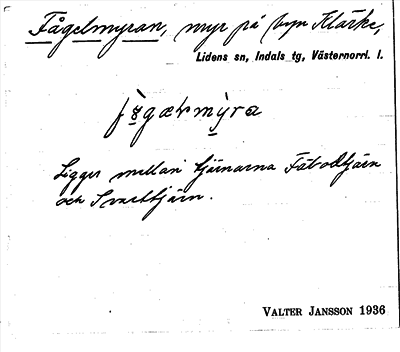 Fågelmyran, myr på byn Klärke,
Lidens sn, Indals tg, Västernorrl. l.
Ligger mellan tjärnarna Fäbodtjärn
och Svarttjärn.
VALTER JANSSON 1936